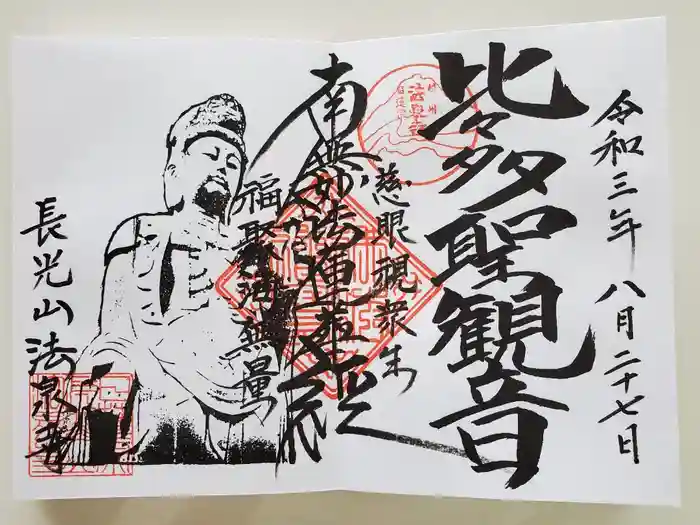 令和三年八月二十七日
比多聖観音
慈眼視衆生
南無妙法蓮華経
福聚海無量
長光山法泉寺